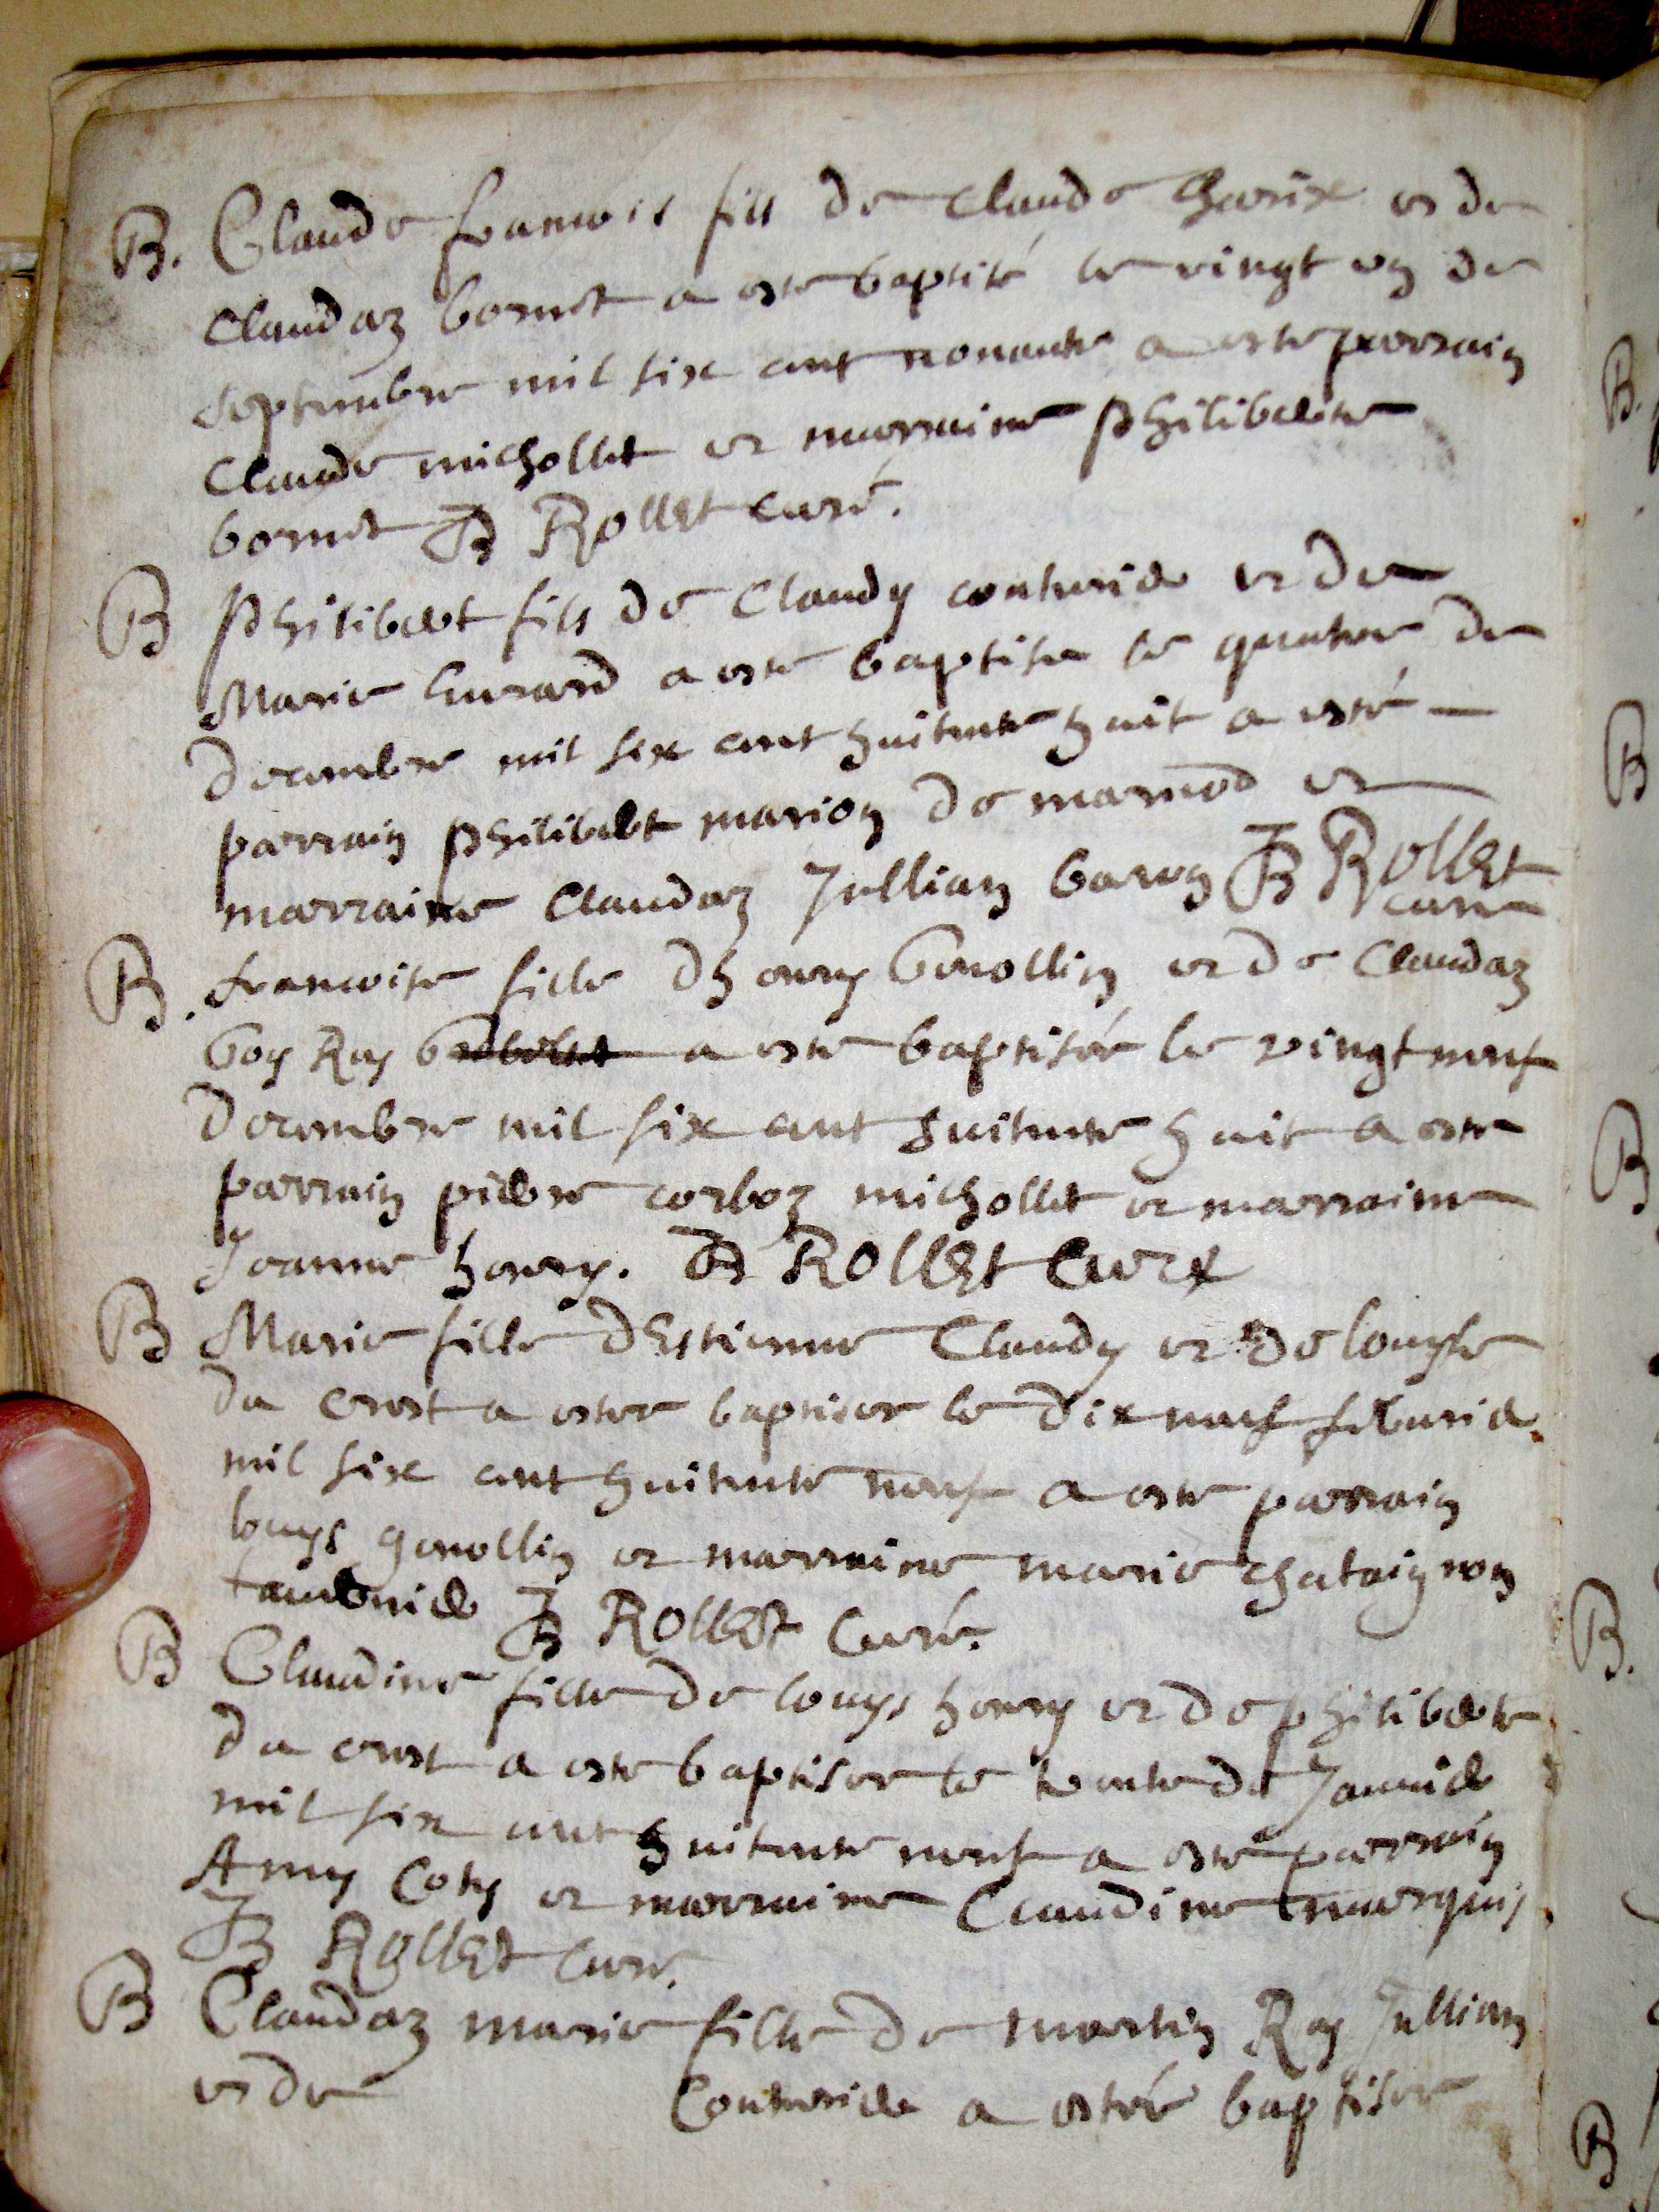 B. Claude francois fils de Claude Charix et de
Claudaz bornet a este baptisé le vingt un de
septembre mil six cent nonante a este parrain
Claude michollet et marraine philiberte
bornet JB Rollet curé.
B Philibert fils de Claudy couturier et de
Marie a este baptise le quatre de
decembre mil six cent huitente huit a esté
parrain philibert marion de marnod et
marraine Claudaz Jullian JB Rollet
curé
B. francoise fille dhenry Genollin et de Claudaz
Goy Ray a este baptisée le vingt neuf
decembre mil six cent huitente huit a este
parrain pierre corboz michollet et marraine
Jeanne henry. JB Rollet Curé
B Marie fille dEstienne Claudy et de louyse
du crest a estee baptisee le dix neuf febvrier
mil six cent huitente neuf a este parrain
louys genollin et marraine marie chataignon
JB Rollet Curé.
B Claudine fille de louys henry et de philiberte
du crest a este baptisee le trente de Janvier
mil six cent huitente neuf a este parrain
Amy Coty et marraine Claudine marquis
JB Rollet Curé.
B Claudaz marie fille de martin Ray Jullian
et de Couturier a estée baptisee
B.
B
B
B.
B